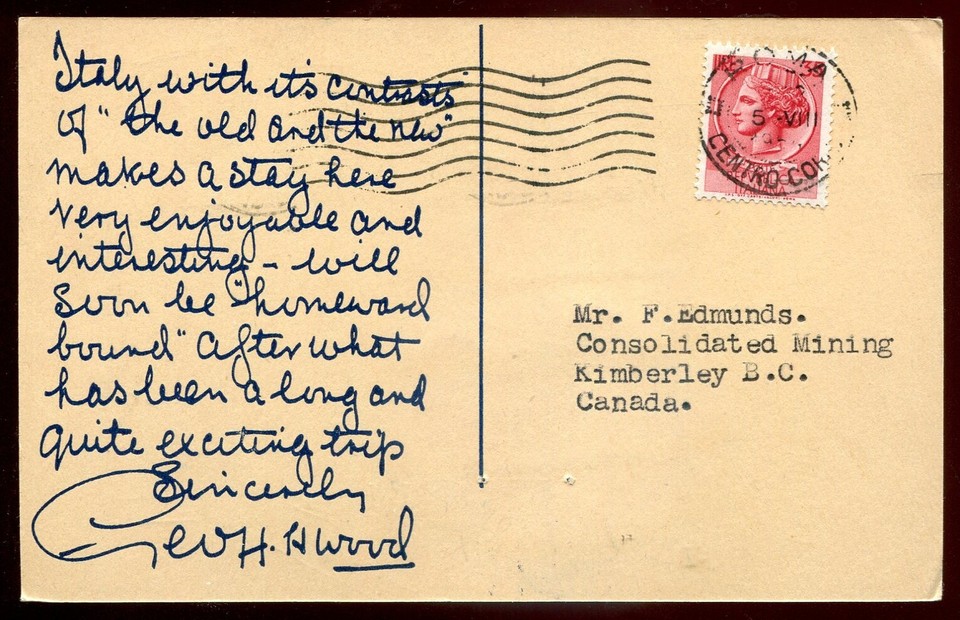 Italy with it's contrasts
of "the old and the new"
makes a stay here
very enjoyable and
interesting - will
soon be "homeward
bound" after what
has been a long and
quite exciting trip
Sincerely
Geo H. Wood
LIRE
ROMA
5 VIII
CENTRO COR
ITALIANA
Mr. F.Edmunds.
Consolidated Mining
Kimberley B.C.
Canada.